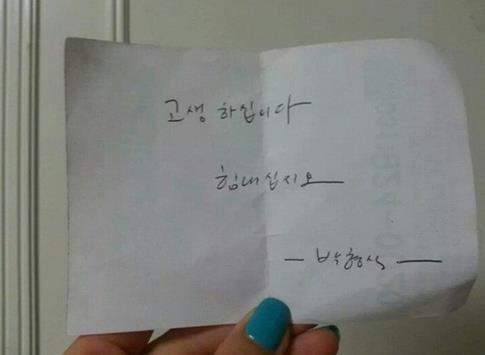 고생 하십니다
힘내십시오
- 박형식 -